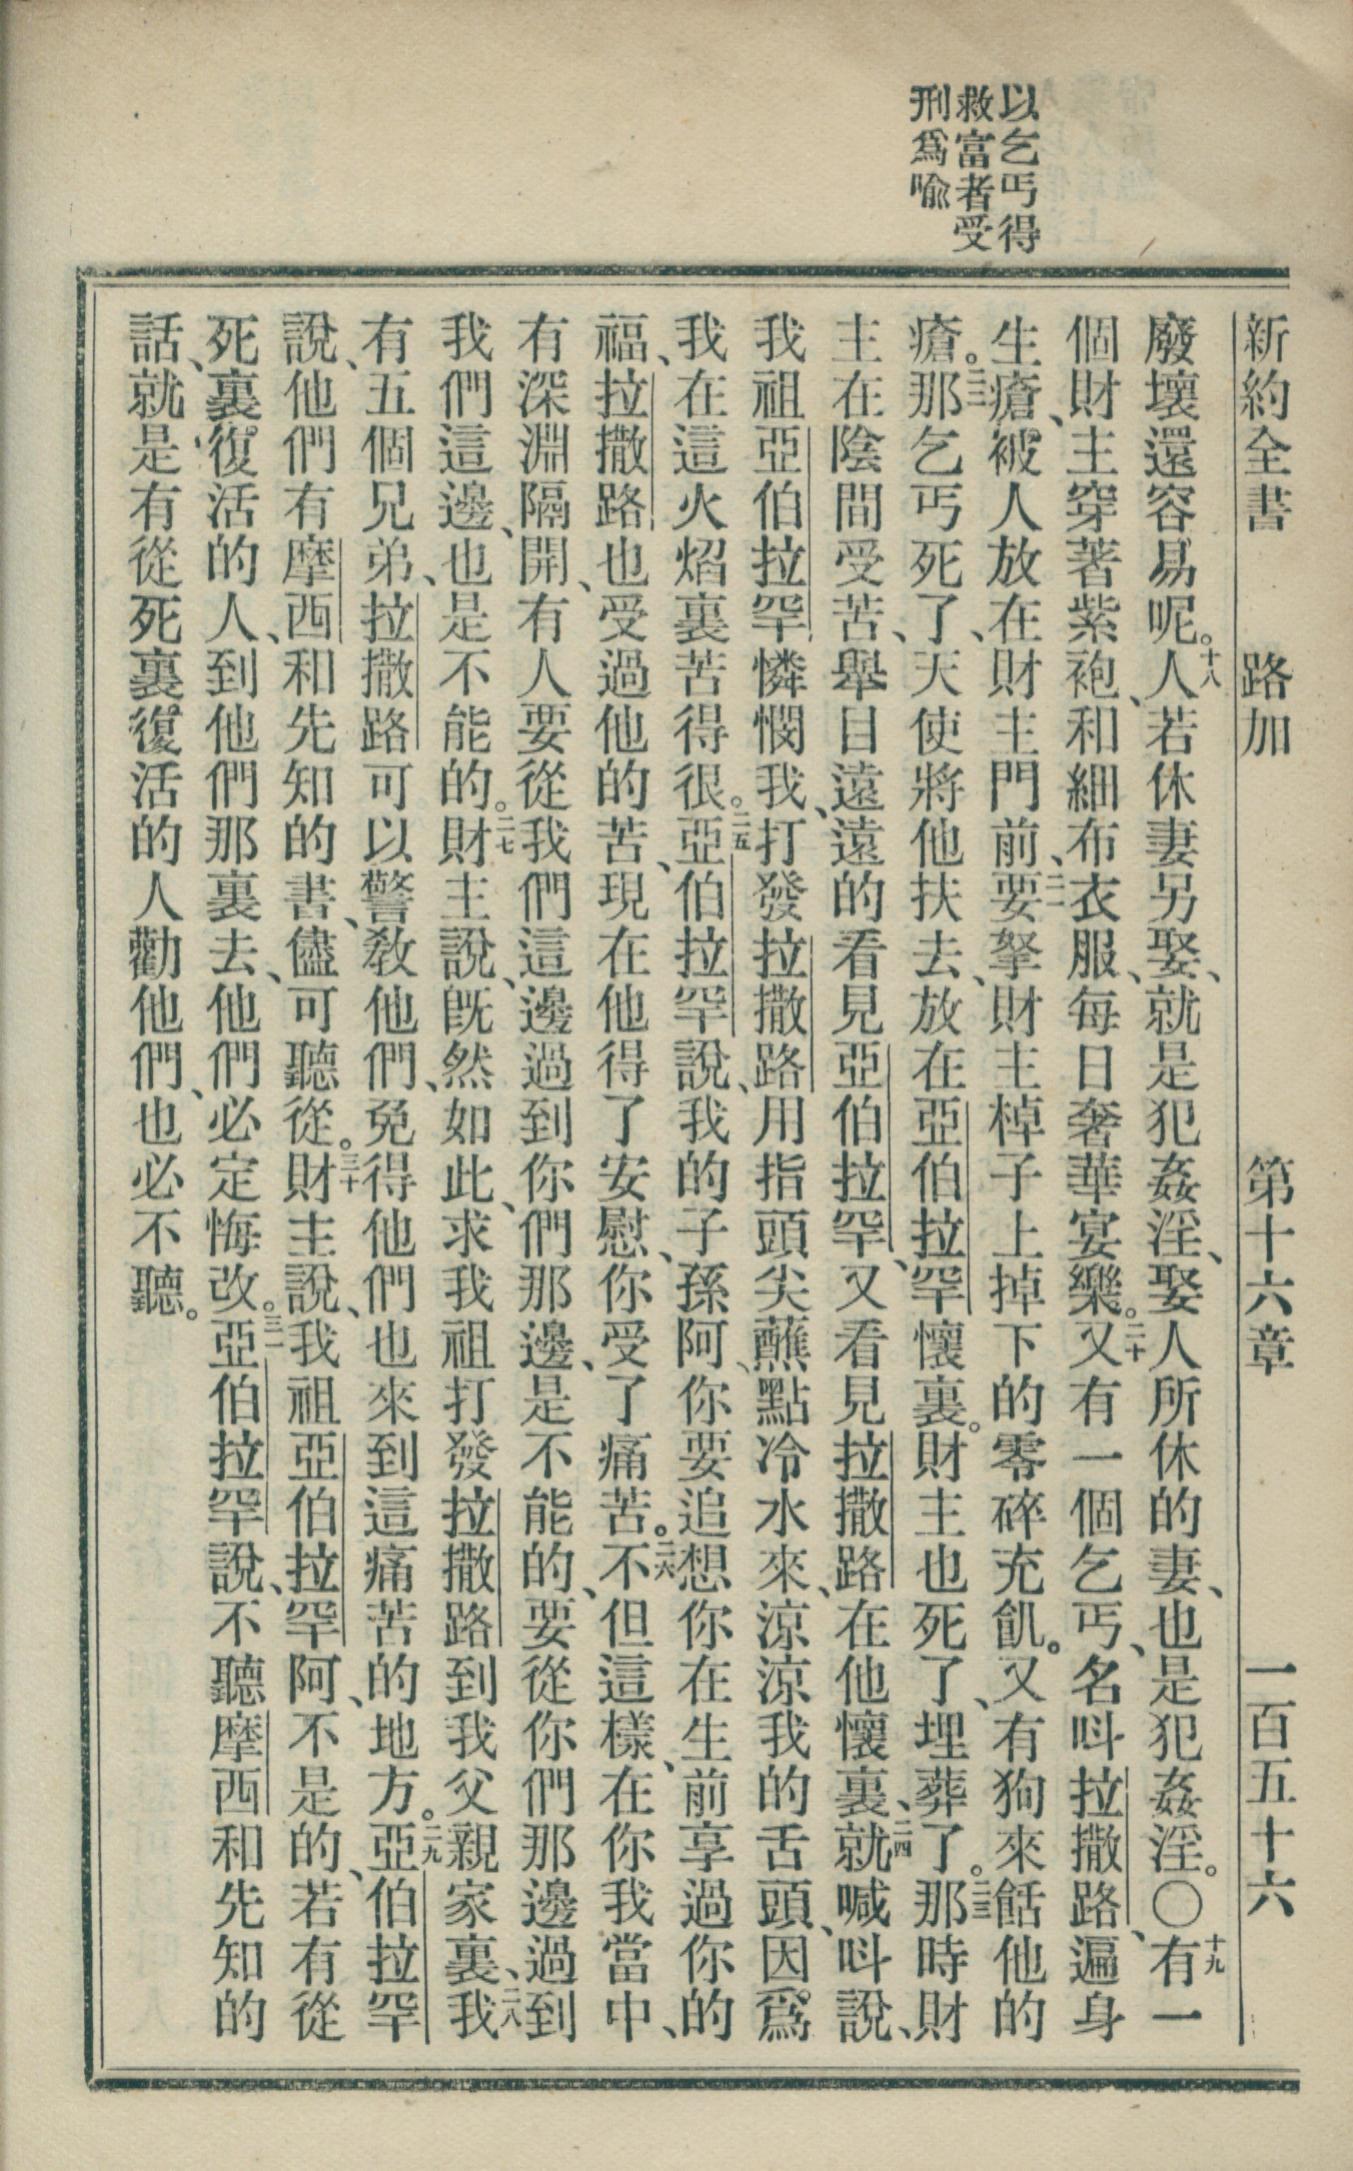 以乞丐得
救富者受
刑爲喩
新約全書 路加 第十六章 一百五十六
廢壞還容易呢。十八人若休妻另娶、就是犯姦淫、娶人所休的妻、也是犯姦淫。〇十九有一
個財主穿著紫袍、和細布衣服、每日奢華宴樂。二十又有一個乞丐、名呌拉撒路、遍身
生瘡、被人放在財主門前、二一要拏財主棹子上掉下的零碎充飢。又有狗來餂他的
瘡。二二那乞丐死了、天使將他扶去、放在亞伯拉罕懷裏。財主也死了、埋葬了。二三那時財
主在陰間受苦、舉目遠遠的看見亞伯拉罕、又看見拉撒路在他懷裏、二四就喊呌說、
我祖亞伯拉罕憐憫我、打發拉撒路用指頭尖蘸點冷水來、涼涼我的舌頭、因爲
我在這火焰裏苦得很。二五亞伯拉罕說、我的子孫阿、你要追想你在生前享過你的
福、拉撒路也受過他的苦、現在他得了安慰、你受了痛苦。二六不但這樣、在你我當中、
有深淵隔開、有人要從我們這邊過到你們那邊、是不能的、要從你們那邊過到
我們這邊、也是不能的。二七財主說、旣然如此、求我祖打發拉撒路到我父親家裏、二八我
有五個兄弟、拉撒路可以警敎他們、免得他們也來到這痛苦的地方。二九亞伯拉罕
說、他們有摩西和先知的書、儘可聽從。三十財主說、我祖亞伯拉罕阿、不是的、若有從
死裏復活的人、到他們那裏去、他們必定悔改。三一亞伯拉罕說、不聽摩西和先知的
話、就是有從死裏復活的人勸他們、也必不聽。